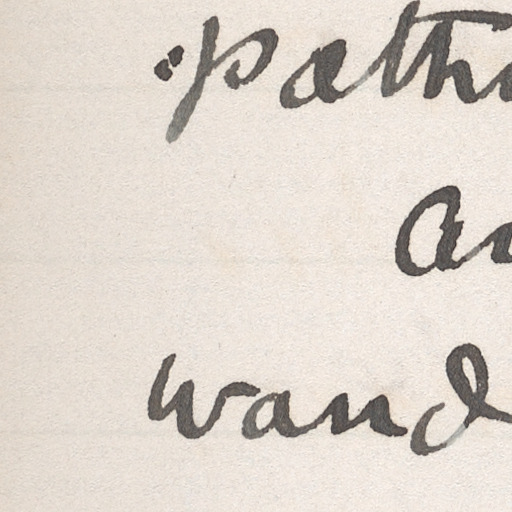 path
an
wand